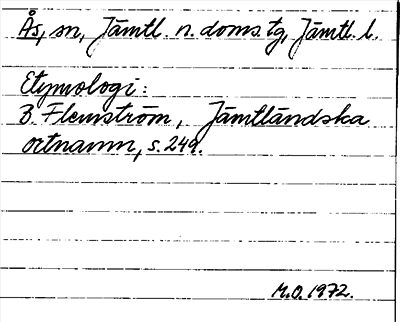 Ås, sn, Jämtl. n. doms.tg, Jämtl. l.
Etymologi:
B. Flemström, Jämtländska
ortnamn, s. 249.
M.O. 1972.